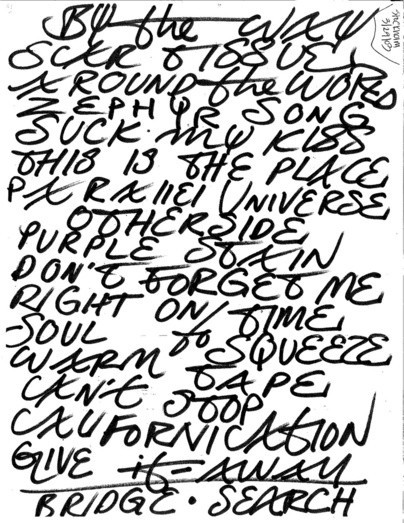 BY the WAY
SCAR TISSUE
AROUND the WORLD
ZEPHYR SONG
SUCK MY KISS
THIS IS THE PLACE
PARAllEl UNIVERSE
OTHERSIDE
PURPLE STAIN
DON'T FORGET ME
RIGHT ON TIME
SOUL to SQUEEZE
WARM TAPE
CAN'T STOP
CALIFORNICATION
GIVE it AWAY
BRIDGE • SEARCH